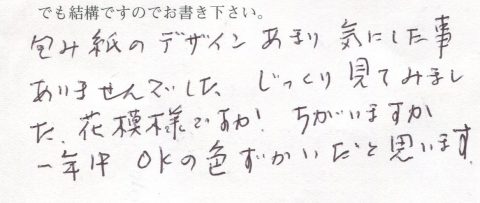 でも結構ですのでお書き下さい。
包み紙のデザインあまり気にした事
ありませんでした、じっくり見てみまし
た、花模様ですか!ちがいますか
一年中OKの色ずかいだと思います。